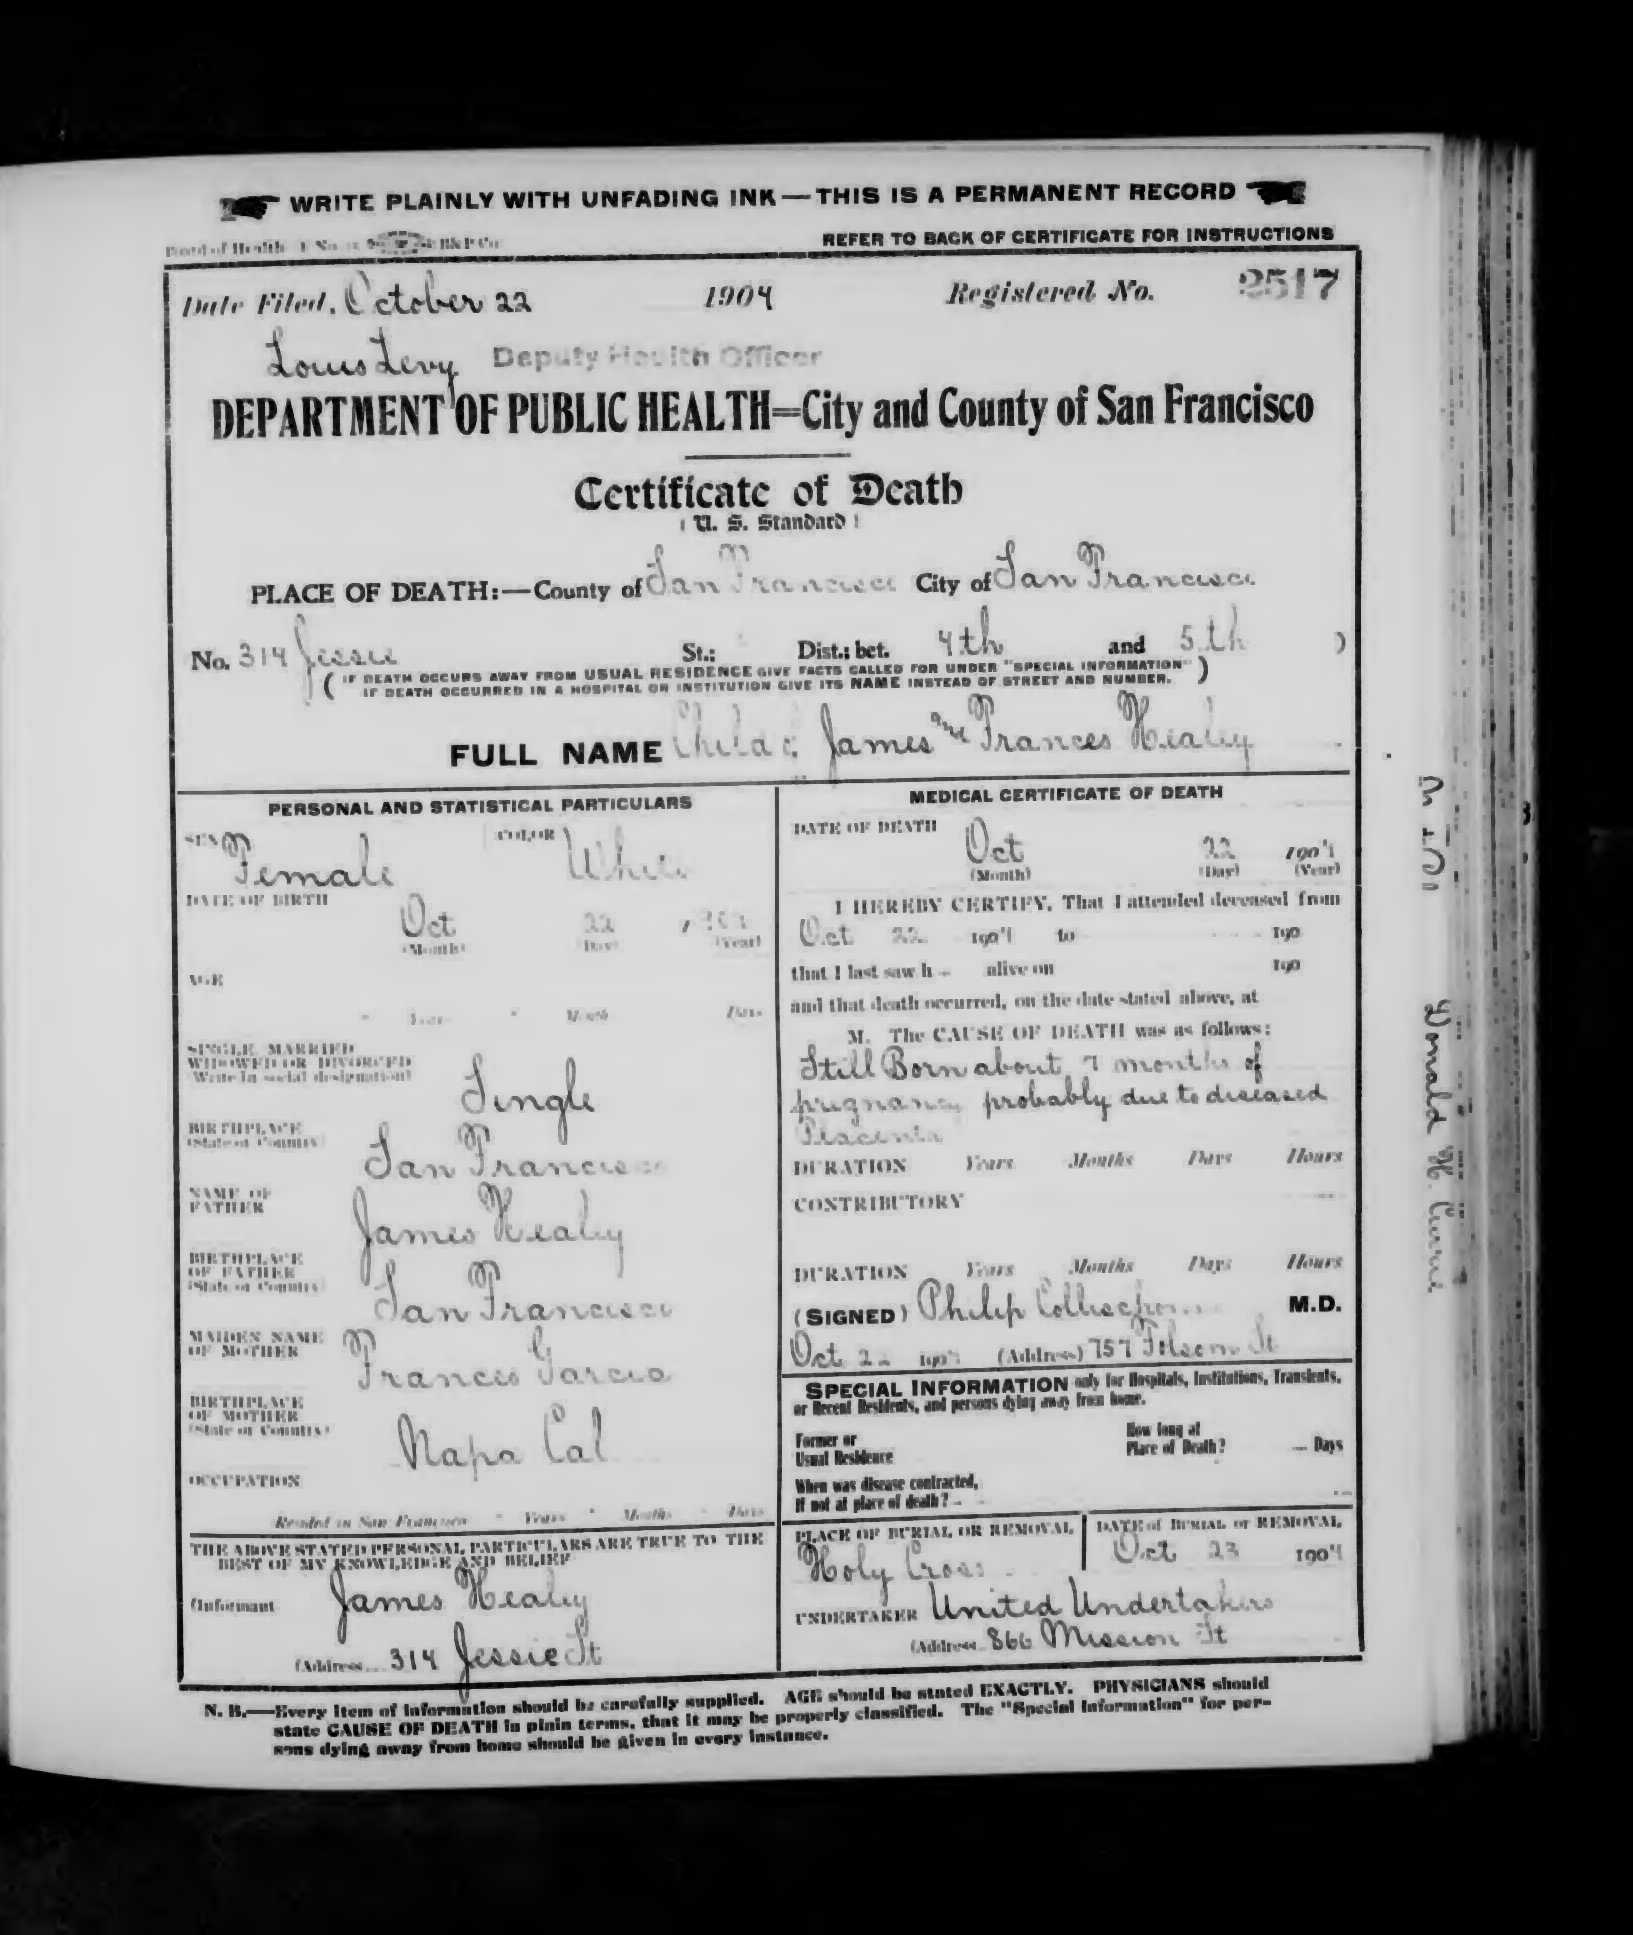 WRITE PLAINLY WITH UNFADING INK — THIS IS A PERMANENT RECORD
Board of Health B&P Co
REFER TO BACK OF CERTIFICATE FOR INSTRUCTIONS
Date Filed, October 22 1904 Registered No. 2517
Louis Levy Deputy Health Officer
DEPARTMENT OF PUBLIC HEALTH=City and County of San Francisco
Certificate of Death
( U. S. Standard )
PLACE OF DEATH:—County of San Francisco City of San Francisco
No. 314 Jessie St.; Dist.; bet. 4th and 5th )
( IF DEATH OCCURS AWAY FROM USUAL RESIDENCE GIVE FACTS CALLED FOR UNDER "SPECIAL INFORMATION" )
IF DEATH OCCURRED IN A HOSPITAL OR INSTITUTION GIVE ITS NAME INSTEAD OF STREET AND NUMBER.
FULL NAME Child of James and Frances Healey
PERSONAL AND STATISTICAL PARTICULARS
SEX Female COLOR White
DATE OF BIRTH Oct 22
(Month) (Day) (Year)
AGE
Years Month Days
SINGLE, MARRIED
WIDOWED OR DIVORCED
(Write in social designation) Single
BIRTHPLACE
(State or Country) San Francisco
NAME OF
FATHER James Healey
BIRTHPLACE
OF FATHER
(State or Country) San Francisco
MAIDEN NAME
OF MOTHER Frances Garcia
BIRTHPLACE
OF MOTHER
(State or Country) Napa Cal
OCCUPATION
Resided in San Francisco Years Months Days
THE ABOVE STATED PERSONAL PARTICULARS ARE TRUE TO THE
BEST OF MY KNOWLEDGE AND BELIEF
(Informant James Healey
(Address 314 Jessie St
MEDICAL CERTIFICATE OF DEATH
DATE OF DEATH Oct 22 1904
(Month) (Day) (Year)
I HEREBY CERTIFY, That I attended deceased from
Oct 22 1904 to 190
that I last saw h alive on 190
and that death occurred, on the date stated above, at
M. The CAUSE OF DEATH was as follows:
Still Born about 7 months of
pregnancy probably due to diseased
Placenta
DURATION Years Months Days Hours
CONTRIBUTORY
DURATION Years Months Days Hours
(SIGNED) Philip M.D.
Oct 22 1904 (Address) 757 Folsom St
SPECIAL INFORMATION only for Hospitals, Institutions, Transients,
or Recent Residents, and persons dying away from home.
Former or
Usual Residence
How long at
Place of Death? Days
When was disease contracted,
If not at place of death?
PLACE OF BURIAL OR REMOVAL
Holy Cross
DATE of BURIAL or REMOVAL
Oct 23 1904
UNDERTAKER United Undertakers
(Address 866 Mission St
N. B.—Every item of information should be carefully supplied. AGE should be stated EXACTLY. PHYSICIANS should
state CAUSE OF DEATH in plain terms, that it may be properly classified. The "Special Information" for per-
sons dying away from home should be given in every instance.
Donald H. Currie